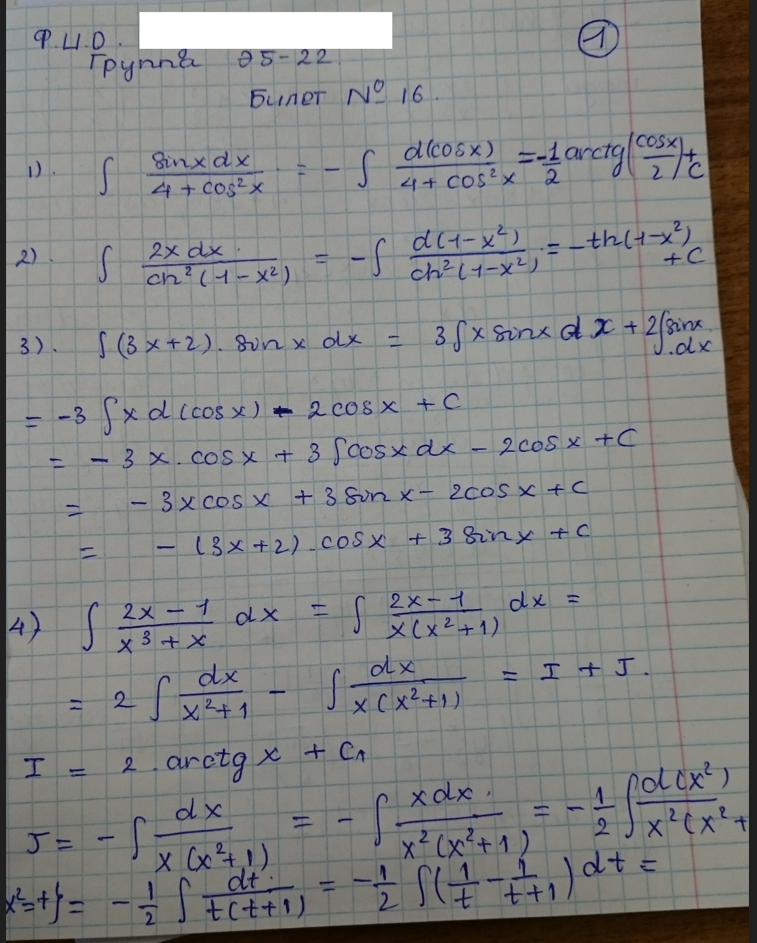 Ф.И.О.
Группа Э5-22.
1
Билет № 16.
1). ∫ sinx dx / (4 + cos²x) = - ∫ d(cosx) / (4 + cos²x) = -1/2 arctg(cosx/2) + C
2). ∫ 2x dx / ch²(1-x²) = -∫ d(1-x²) / ch²(1-x²) = -th(1-x²) + C
3). ∫(3x+2).sinx dx = 3∫x sinx dx + 2∫sinx.dx
= -3∫x d(cosx) - 2cosx + C
= - 3x.cosx + 3∫cosx dx - 2cosx + C
= - 3xcosx + 3sinx - 2cosx + C
= - (3x+2).cosx + 3sinx + C
4) ∫ (2x-1)/(x³+x) dx = ∫ (2x-1)/(x(x²+1)) dx =
= 2∫ dx/(x²+1) - ∫ dx/(x(x²+1)) = I + J.
I = 2.arctgx + C₁
J = -∫ dx/(x(x²+1)) = -∫ xdx/(x²(x²+1)) = -1/2 ∫ d(x²)/(x²(x²+
x²=t} = -1/2 ∫ dt/(t(t+1)) = -1/2 ∫(1/t - 1/(t+1)) dt =